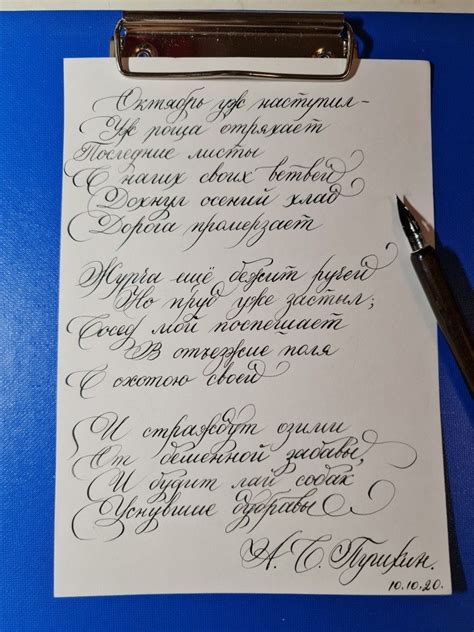 Октябрь уж наступил-
Уж роща отряхает
Последние листы
С нагих своих ветвей
Дохнул осений хлад
Дорога промерзает
Журча ещё бежит ручей
Но пруд уже застыл;
Сосед мой поспешает
В отъезжие поля
С охотою своей
И страждут озими
От бешенной забавы,
И будит лай собак
Уснувшие дубравы
А. С. Пушкин.
10.10.20.